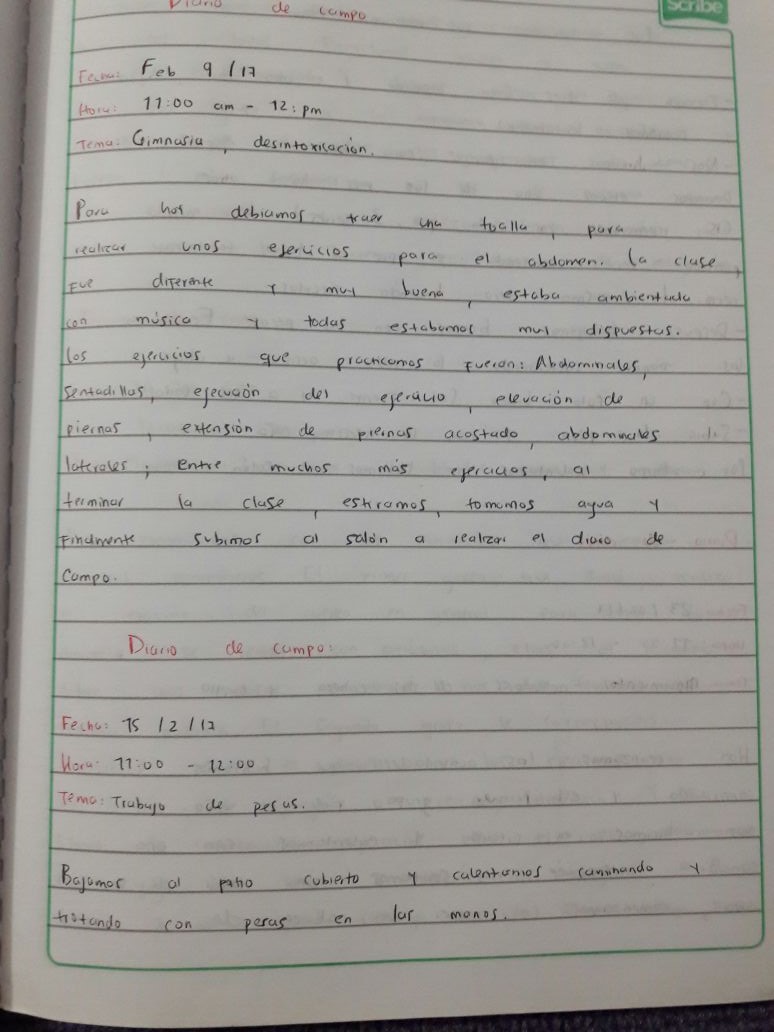 Scribe
Diario de campo
Fecha: Feb 9 / 17
Hora: 11:00 am - 12: pm
Tema: Gimnasia, desintoxicación.
Para hoy debiamos traer una toalla, para
realizar unos ejercicios para el abdomen. la clase,
Fue diferente y muy buena, estaba ambientada
con música y todas estabamos muy dispuestas.
los ejercicios que practicamos fueron: Abdominales,
sentadillas, ejecución del ejercicio, elevación de
piernas, extensión de piernas acostado, abdominales
laterales; Entre muchos más ejercicios, al
terminar la clase, estiramos, tomamos agua y
Finalmente subimos al salón a realizar el diario de
Campo.
Diario de campo:
Fecha: 15 / 2 / 17
Hora: 11:00 - 12:00
Tema: Trabajo de pesas.
Bajamos al patio cubierto y calentamos caminando y
trotando con pesas en las manos.